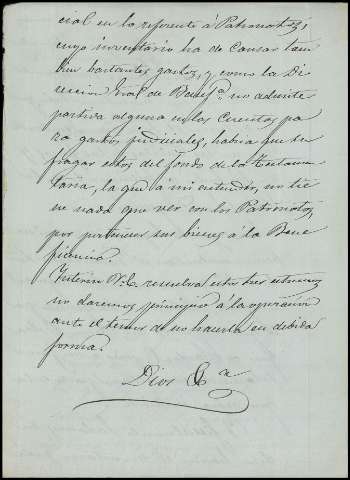 cial en lo referente á Patronatos,
cuyo inventario ha de causar tam
bien bastantes gastos, y, como la Di
reccion Gral. de Benefa. no admite
partida alguna en las cuentas pa
ra gastos judiciales, habra que su
fragar estos del fondo de la Testamen
taria, la que á mi entender, no tie
ne nada que ver con los Patronatos,
por pertenecer sus bienes á la Bene
ficencia.
Interin V.E. resuelva estos tres estremos
no daremos principio á la operacion
ante el temor de no hacerla en debida
forma.
Dios &a.